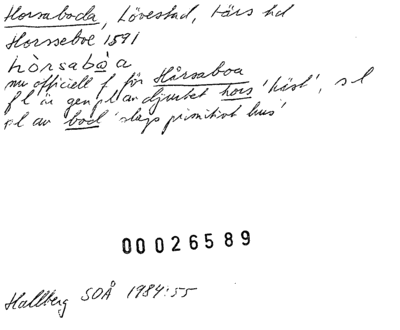 Horsaboda, Lövestad, Färs hd
Horsseboe 1591
hòrsabòa
nu officiell f för Hårsaboa
f l är gen pl av djurbet hors 'häst', s l
pl av bod 'slags primitivt hus'
00026589
Hallberg SOÅ 1984:55